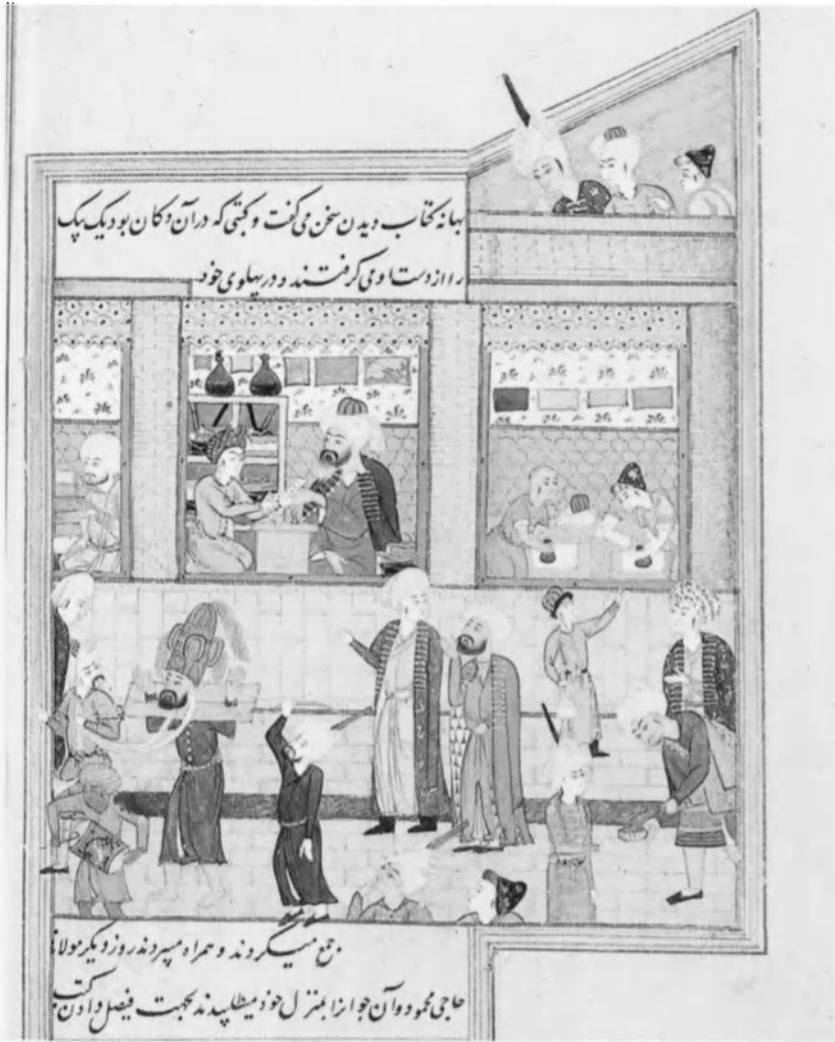 بهانه کتاب دیدن سخن می گفت و کتبی که در آن دکان بود یک یک
را از دست او می گرفتند و در پهلوی خود
جمع میکردند و همراه میبردند روز دیگر مولانا
حاجی محمود و آن جوانرا بمنزل خود میطلبیدند بجهت فیصل دادن کتب